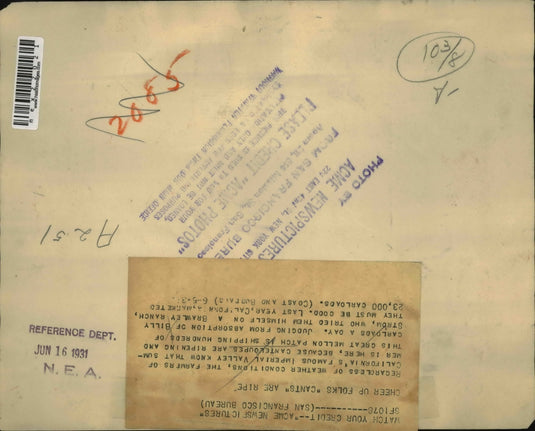 103/8
A
2085
PHOTO BY
ACME NEWSPICTURES
220 EAST 42nd St. NEW YORK CITY
FROM SAN FRANCISCO BUREAU
PLEASE CREDIT "ACME PHOTOS"
A251
REFERENCE DEPT.
JUN 16 1931
N. E. A.
WATCH YOUR CREDIT--"ACME NEWSPICTURES"
SF1078-------------(SAN FRANCISCO BUREAU)
CHEER UP FOLKS "CANTS" ARE RIPE.
REGARDLESS OF WEATHER CONDITIONS, THE FARMERS OF
CALIFORNIA'S FAMOUS IMPERIAL VALLEY KNOW THAT SUM-
MER IS HERE, BECAUSE CANTELOUPES ARE RIPENING AND
THIS GREAT MELLON PATCH IS SHIPPING HUNDREDS OF
CARLOADS A DAY. JUDGING FROM ABSORPTION OF BILLY
STROW, WHO TRIED THEM HIMSELF ON A BRAWLEY RANCH,
THEY MUST BE GOOD. LAST YEAR, CALIFORNIA MARKETED
23,000 CARLOADS. (COAST AND BUREAUS)